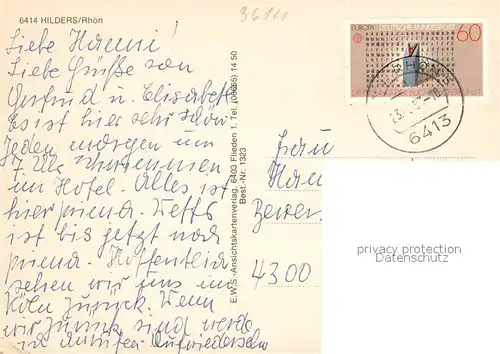 6414 HILDERS/Rhön
36111
Liebe Hanni!
Liebe Grüße von
Gertrud u. Elisabeth
Es ist hier sehr schön
Jeden morgen um
7. Uhr Schwimmen
im Hotel. Alles ist
hier prima. Wetter
ist bis jetzt noch
prima. Hoffentlich
sehen wir uns in
Köln zurück. Wenn
wir zurück sind werde
ich anrufen Aufwiedersehn
E.W.S.-Ansichtskartenverlag, 6403 Flieden 1, Tel. (06655) 14 50
Best.-Nr. 1323
EUROPA
BUNDESPOST 60
6413
Frau
4300
privacy protection
Datenschutz